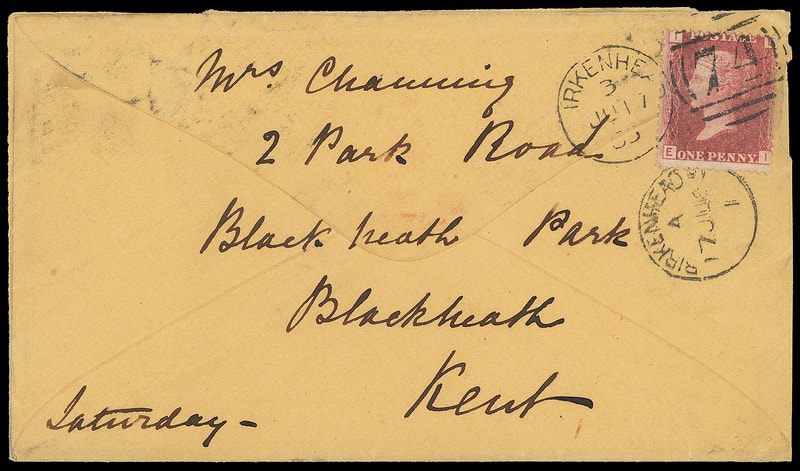 Mrs Channing
2 Park Road
Black heath Park
Blackheath
Kent
Saturday-
IRKENHE
JU 17
POSTAGE
ONE PENNY
E I
BIRKENHEAD
A
17 JU
1